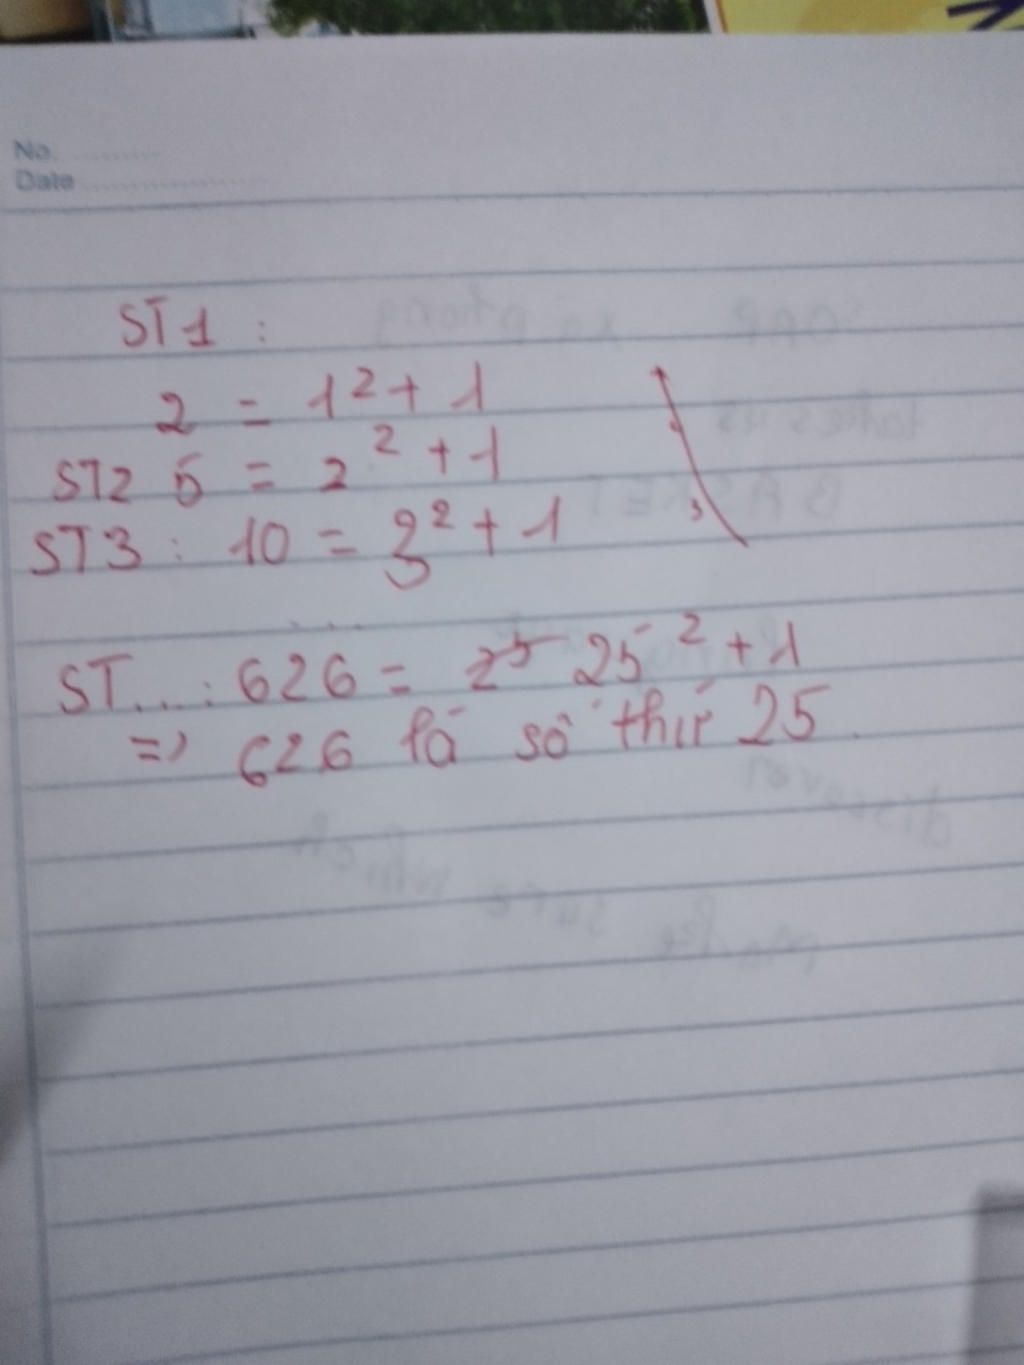 No. ..........
Date ....................
ST1 :
2 = 1² + 1
ST2 5 = 2² + 1
ST3 : 10 = 3² + 1
...
ST...: 626 = 25 25² + 1
=> 626 là số thứ 25.